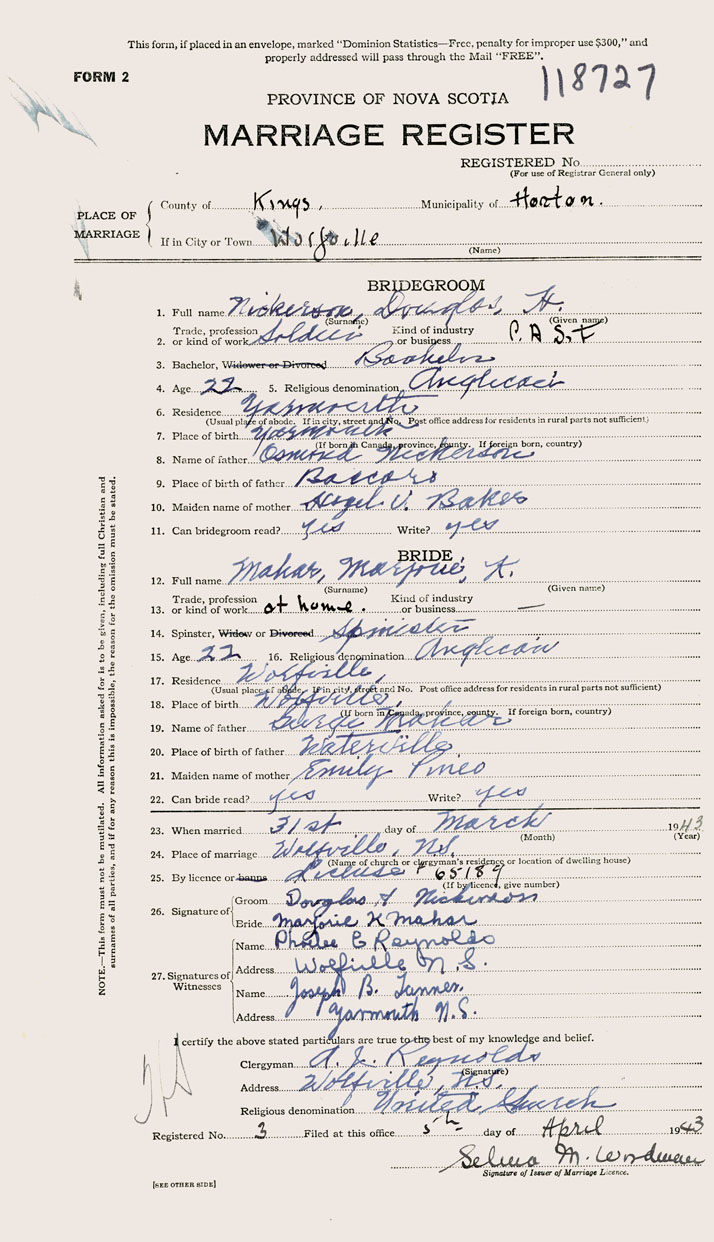 This form, if placed in an envelope, marked "Dominion Statistics—Free, penalty for improper use $300," and
properly addressed will pass through the Mail "FREE".
FORM 2
118727
PROVINCE OF NOVA SCOTIA
MARRIAGE REGISTER
REGISTERED No.
(For use of Registrar General only)
PLACE OF MARRIAGE
County of Kings, Municipality of Horton.
If in City or Town Wolfville
(Name)
BRIDEGROOM
1. Full name Nickerson, Douglas, H.
(Surname) (Given name)
Trade, profession Kind of industry
2. or kind of work Soldier or business
3. Bachelor, Widower or Divorced Bachelor
4. Age 22 5. Religious denomination Anglican
6. Residence Yarmouth
(Usual place of abode. If in city, street and No. Post office address for residents in rural parts not sufficient)
7. Place of birth Yarmouth
(If born in Canada, province, county. If foreign born, country)
8. Name of father Osmond Nickerson
9. Place of birth of father Baccaro
10. Maiden name of mother Hazel V. Baker
11. Can bridegroom read? yes Write? yes
BRIDE
12. Full name Mahar, Marjorie, K.
(Surname) (Given name)
Trade, profession Kind of industry
13. or kind of work at home. or business —
14. Spinster, Widow or Divorced Spinister
15. Age 22 16. Religious denomination Anglican
17. Residence Wolfville,
(Usual place of abode. If in city, street and No. Post office address for residents in rural parts not sufficient)
18. Place of birth Wolfville,
(If born in Canada, province, county. If foreign born, country)
19. Name of father George Mahar
20. Place of birth of father Waterville
21. Maiden name of mother Emily Pineo
22. Can bride read? yes Write? yes
23. When married 31st day of March 1943
(Month) (Year)
24. Place of marriage Wolfville, N.S.
(Name of church or clergyman's residence or location of dwelling house)
25. By licence or banns License F 65189
(If by licence, give number)
26. Signature of
Groom Douglas H Nickerson
Bride Marjorie K Mahar
27. Signatures of Witnesses
Name Phoebe E Reynolds
Address Wolfville N.S.
Name Joseph B. Tanner
Address Yarmouth N.S.
I certify the above stated particulars are true to the best of my knowledge and belief.
Clergyman Reynolds
(Signature)
Address Wolfville, N.S.
Religious denomination United Church
Registered No. 3 Filed at this office 5th day of April 1943
Selma M. Woodman
Signature of Issuer of Marriage Licence.
[SEE OTHER SIDE]
NOTE.—This form must not be mutilated. All information asked for is to be given, including full Christian and
surnames of all parties, and if for any reason this is impossible, the reason for the omission must be stated.